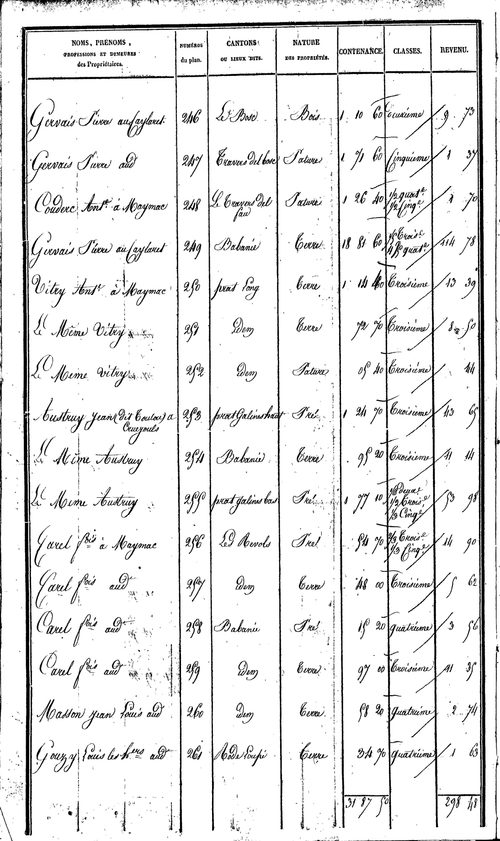 NOMS, PRÉNOMS, PROFESSIONS ET DEMEURES des Propriétaires. NUMÉROS du plan. CANTONS OU LIEUX DITS. NATURE DES PROPRIÉTÉS. CONTENANCE. CLASSES. REVENU.
Gervais Pierre au Caylaret 246 Le Bosc Bois 1 10 60 9 73
Gervais Pierre aud 247 Travers del bosc Pature 1 71 60 Cinquieme 1 37
Couderc Ant.e à Maymac 248 Le Travers del 1 26 40 1/2 quat.e 1/2 Cinq.e 70
Gervais Pierre au Caylaret 249 Babanie Terre 18 81 60 114 78
Vitry Ant.e à Maymac 250 prat long Terre 1 14 Troisième 13 39
Le Même Vitry 251 idem Terre 72 70 Troisième 50
Le Meme Vitry 252 idem Pature 05 40 Troisième 44
Austruy jean dit à 253 prat galins haut Pré 1 24 70 Troisième 43 65
Le Même Austruy 254 Babanie Terre 95 20 Troisième 11 14
Le Meme Austruy 255 prat galins bas Pré 1 77 10 1/3 Trois.e 1/3 Cinq.e 53 98
Carel f.ois à Maymac 256 Les Revols Pré 54 70 2/3 Trois.e 1/3 Cinq.e 14 90
Carel f.ois aud 257 idem Terre 48 00 Troisième 5 62
Carel f.ois aud 258 Babanie Pré 15 20 quatrieme 3 56
Carel f.ois aud 259 idem Terre 97 00 Troisième 11 35
Masson jean Louis aud 260 idem Terre 58 20 quatrieme 2 74
Gouzy Louis les h.ers aud 261 Terre 34 70 quatrieme 1 63
31 87 50 298 48